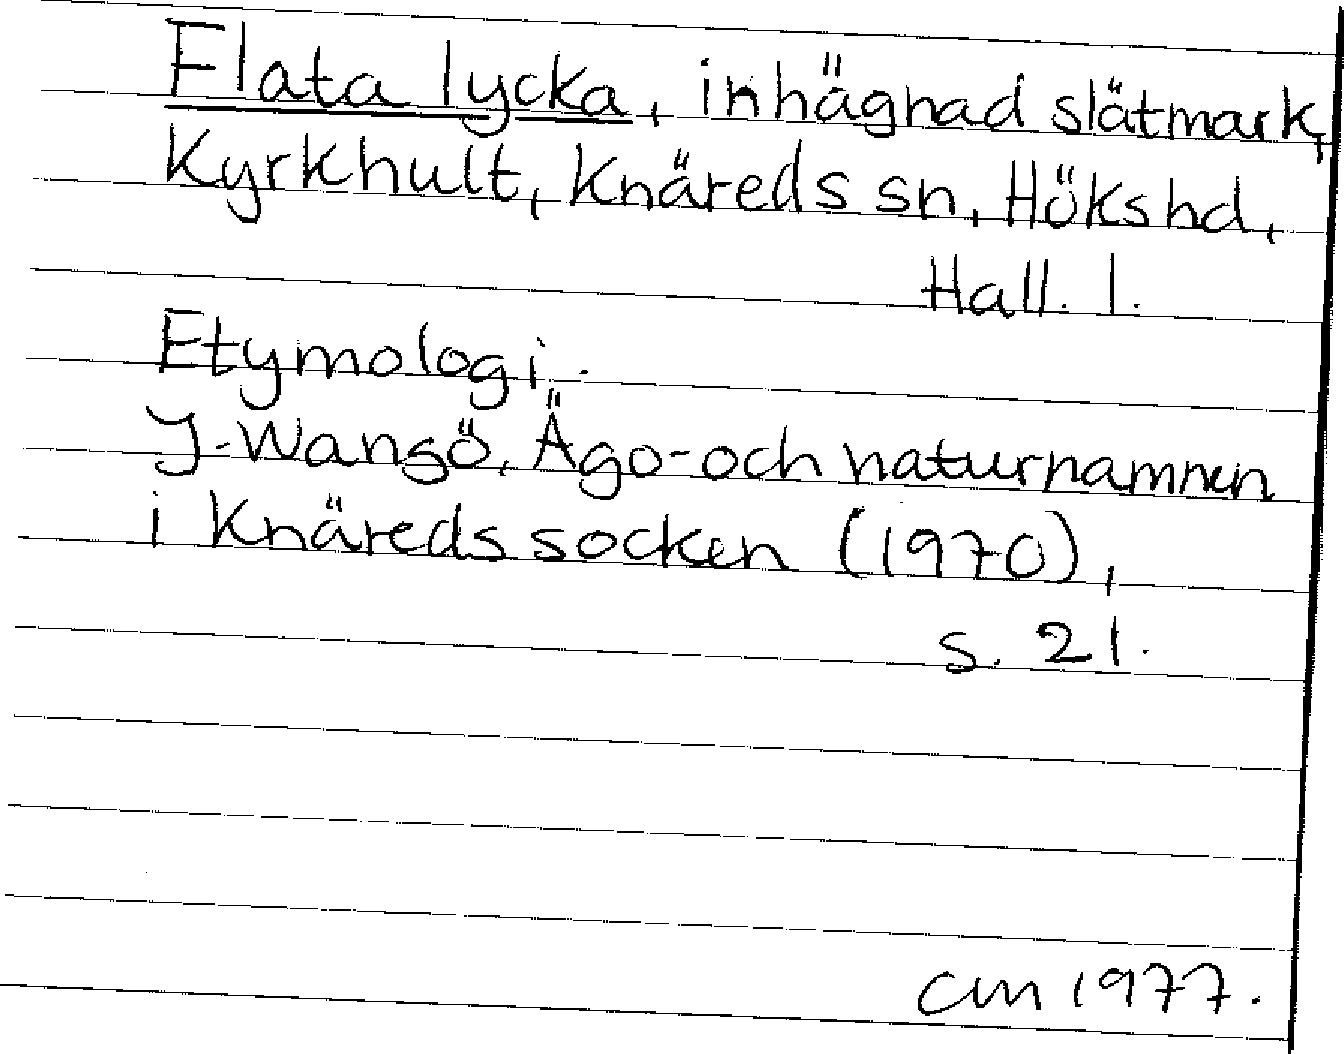 Flata lycka, inhägnad slätmark,
Kyrkhult, Knäreds sn, Höks hd,
Hall. l.
Etymologi.
J-Wangö, Ägo- och naturnamnen
i Knäreds socken (1970),
s. 21.
CM 1977.